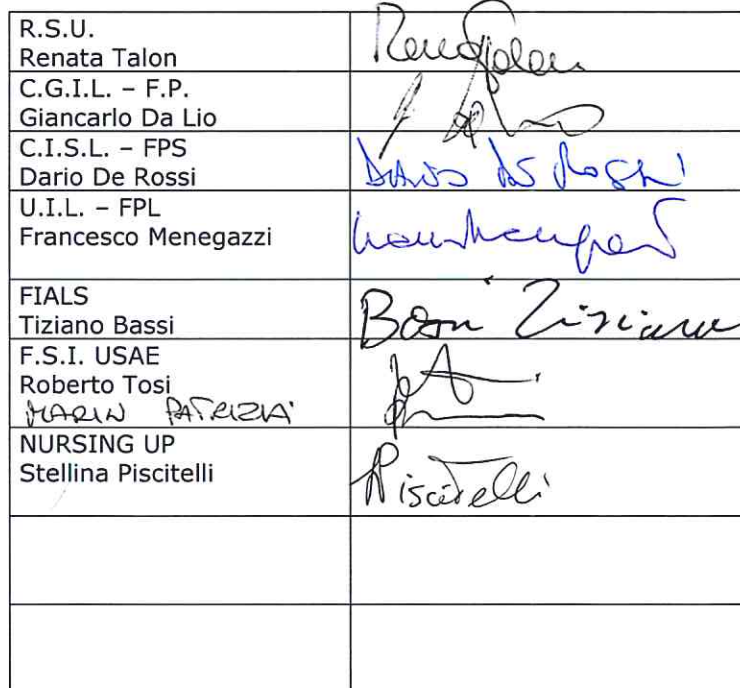 R.S.U.
Renata Talon
C.G.I.L. – F.P.
Giancarlo Da Lio
C.I.S.L. – FPS
Dario De Rossi
U.I.L. – FPL
Francesco Menegazzi
FIALS
Tiziano Bassi
Bassi Tiziano
F.S.I. USAE
Roberto Tosi
MARIN PATRIZIA
NURSING UP
Stellina Piscitelli
Piscitelli